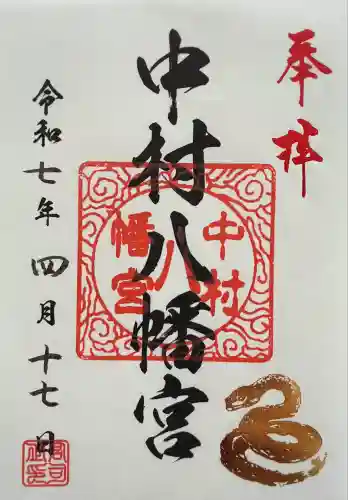 奉拝
中村八幡宮
中村
八
幡宮
令和七年四月十七日